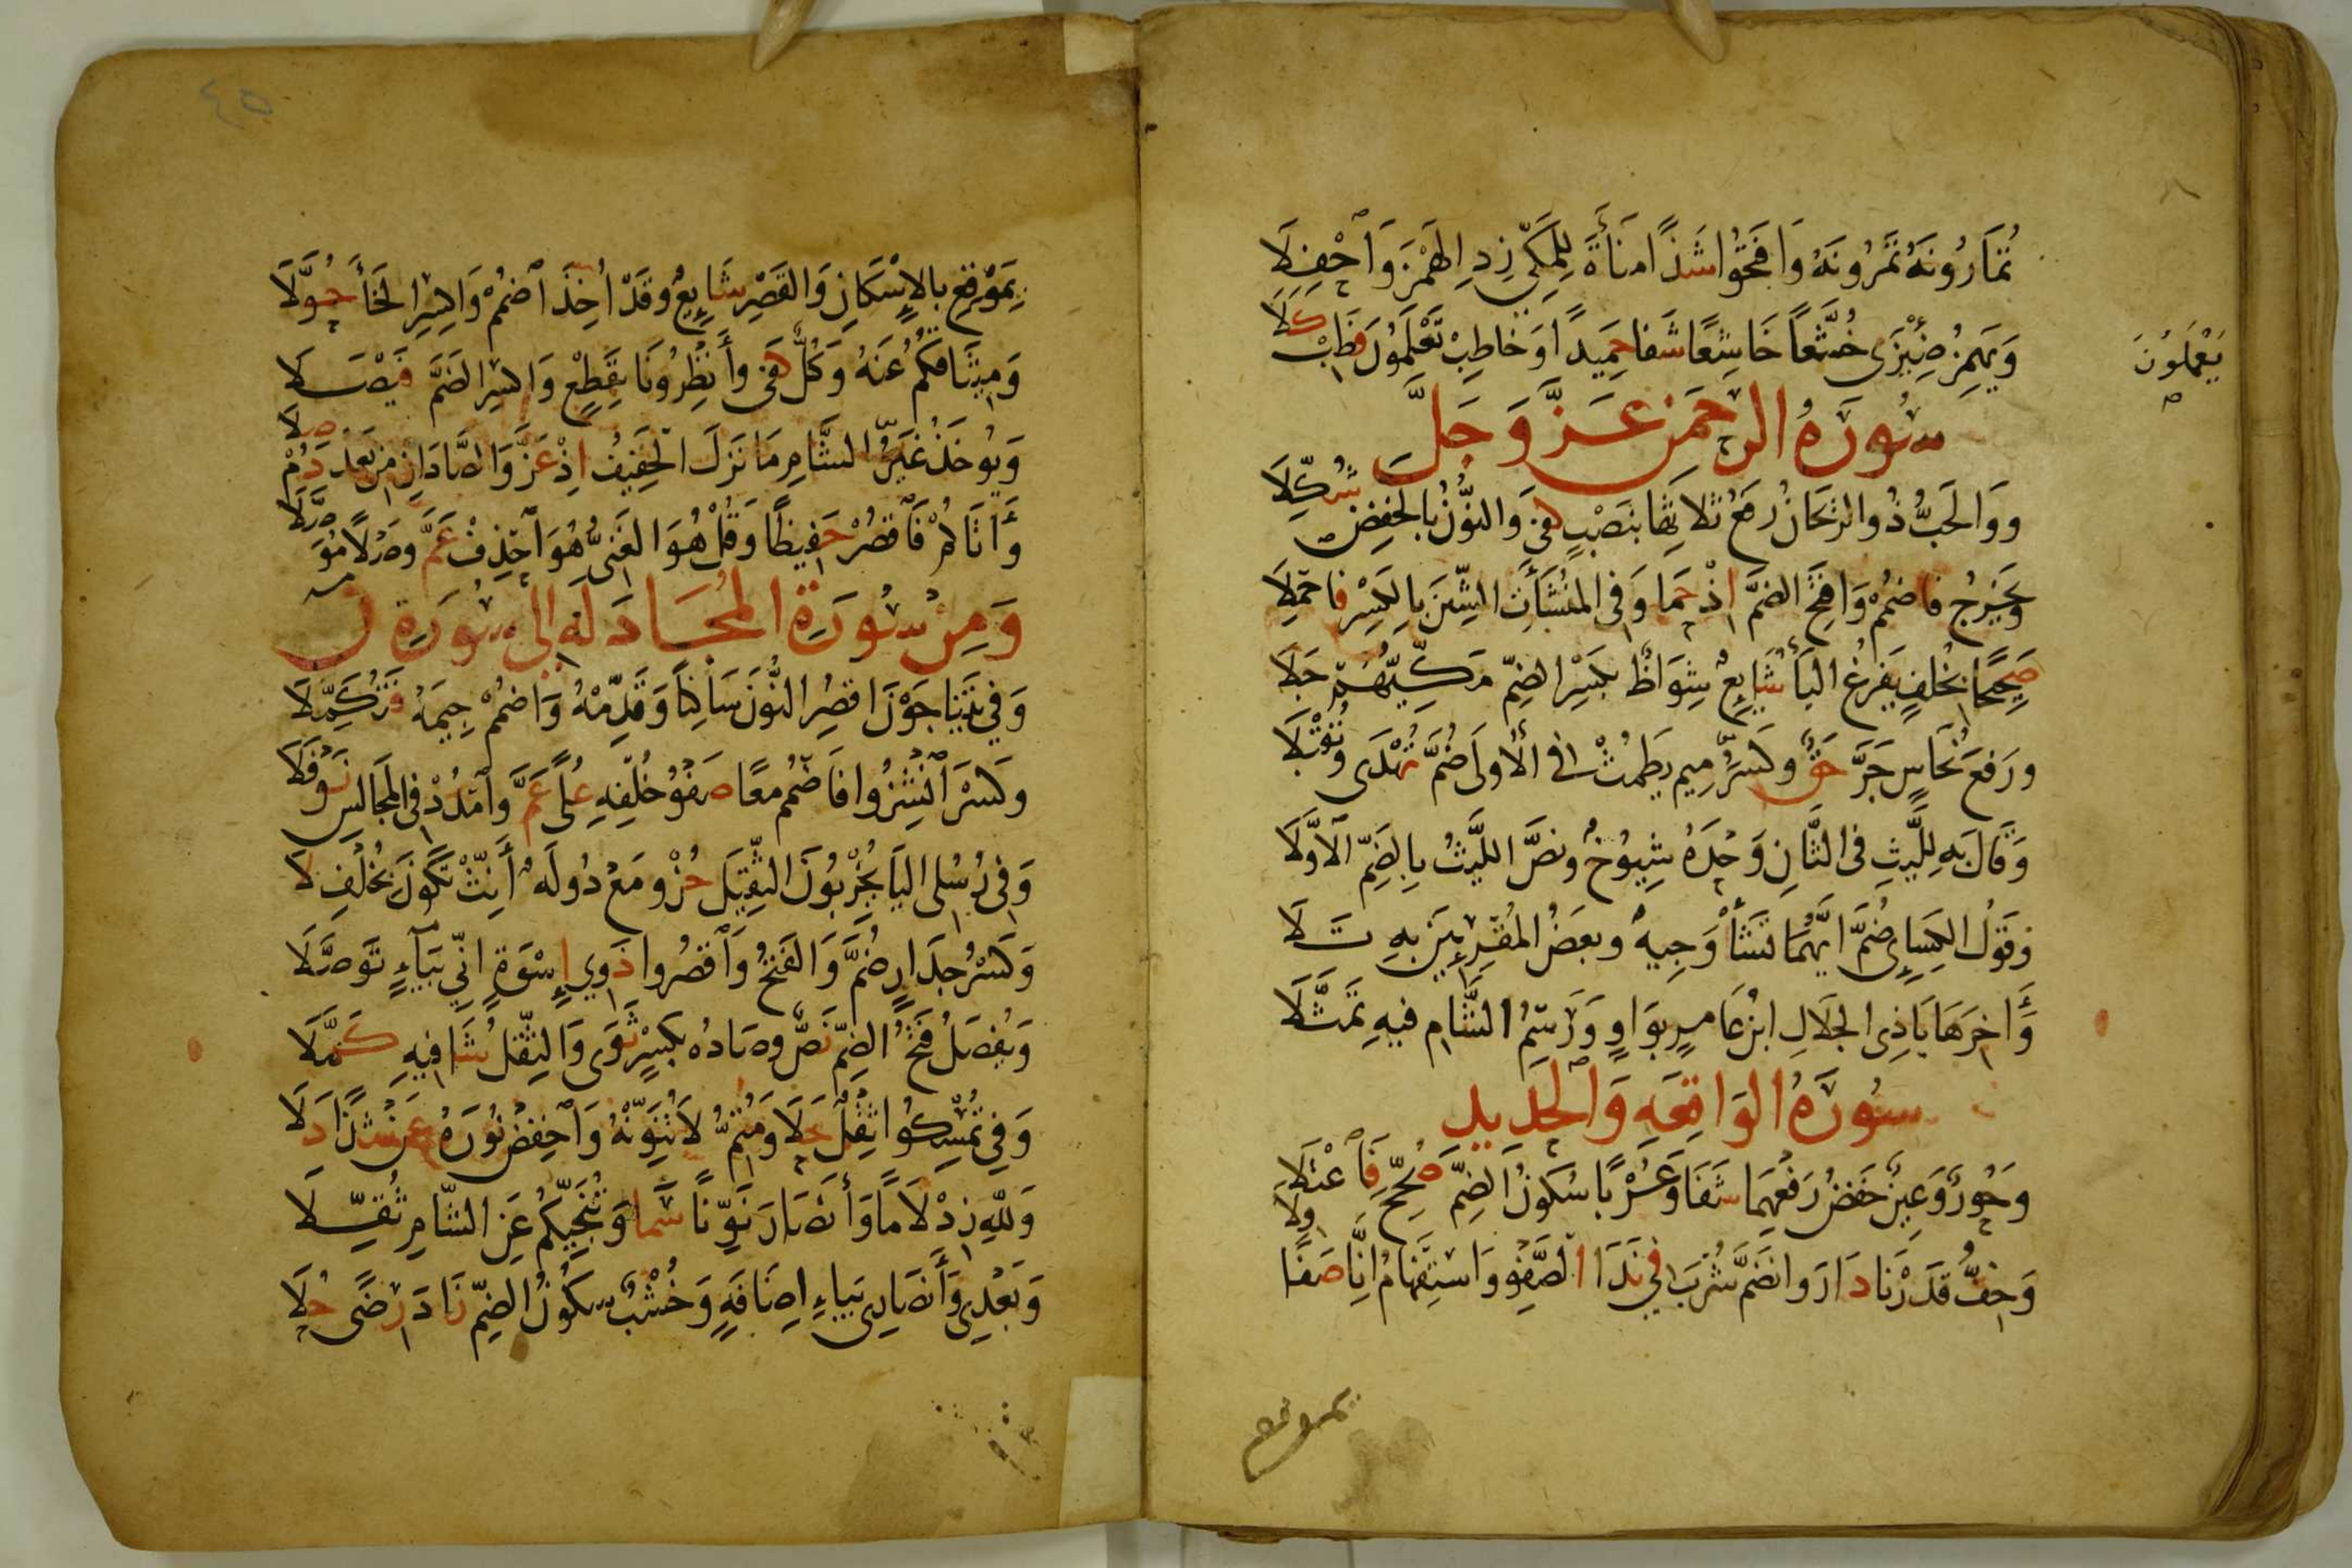 تُمَارُونَهُ تَمْرُونَهُ وَافْتَحُوا شَذًا مَنَاءَةَ لِلْمَكِّيِّ زِدِ الْهَمْزَ وَاحْفِلَا
وَيَهْمِزُ ضِئْزَى خُشَّعًا خَاشِعًا شَفَا حَمِيدًا وَخَاطِبْ تَعْلَمُونَ فَطِبْ كَلَا
يَعْلَمُونَ
سُورَةُ الرَّحْمَنِ عَزَّ وَجَلَّ
وَوَالْحَبُّ ذُو الرَّيْحَانُ رَفْعُ ثَلَاثِهَا بِنَصْبٍ كَفَى وَالنُّونُ بِالْخَفْضِ شُكِّلَا
وَيَخْرُجُ فَاضْمُمْ وَافْتَحِ الضَّمَّ إِذْ حَمَا وَفِي الْمُنْشَآتُ الشِّينَ بِالْكَسْرِ فَاحْمِلَا
صَحِيحًا بِخُلْفٍ يَفْرُغُ الْيَاءُ شَايِعٌ شِوَاظٌ بِكَسْرِ الضَّمِّ مَكِّيُّهُمْ جَلَا
وَرَفْعَ نُحَاسٍ جَرَّ حَقٌّ وَكَسْرُ مِيمِ يَطْمِثْ فِي الْأُولَى ضُمَّ تُهْدَى وَتُقْبَلَا
وَقَالَ بِهِ لِلَّيْثِ فِي الثَّانِ وَحْدَهُ شُيُوخٌ وَنَصَّ اللَّيْثُ بِالضَّمِّ الْأَوَّلَا
وَقَوْلُ الْكِسَائِي ضُمَّ أَيَّهُمَا تَشَأْ وَجِيهٌ وَبَعْضُ الْمُقْرِئِينَ بِهِ تَلَا
وَآخِرَهَا يَا ذِي الْجَلَالِ ابْنُ عَامِرٍ بِوَاوٍ وَرَسْمُ الشَّامِ فِيهِ تَمَثَّلَا
سُورَةُ الْوَاقِعَهِ وَالْحَدِيدِ
وَحُورٌ وَعِينٌ خَفْضُ رَفْعِهِمَا شَفَا وَعُرْبًا سُكُونُ الضَّمِّ صُحِّحَ فَاعْتَلَا
وَخِفُّ قَدَرْنَا دَارَ وَانْضَمَّ شُرْبَ فِي نَدَا الصَّفْوِ وَاسْتِفْهَامُ إِنَّا صَفَا وِلَا
بموقع
٤٥
بِمَوْقِعِ بِالْإِسْكَانِ وَالْقَصْرِ شَايِعٌ وَقَدْ أُخِذَ اضْمُمْ وَاكْسِرِ الْخَاءَ حُوَّلَا
وَمِيثَاقُكُمْ عَنْهُ وَكُلٌّ كَفَى وَأَنْظِرُونَا بِقَطْعٍ وَاكْسِرِ الضَّمَّ فَيْصَلَا
وَيُوخَذُ غَيْرُ الشَّامِ مَا نَزَلَ الْخَفِيفُ إِذْ عَزَّ وَالصَّادَانِ مِنْ بَعْدُ دُمْ صِلَا
وَآتَاكُمْ فَاقْصُرْ حَفِيظًا وَقُلْ هُوَ الْغَنِيُّ هُوَ احْذِفْ عَمَّ وَصْلًا مُوَصَّلَا
وَمِنْ سُورَةِ الْمُجَادَلَهِ إِلَى سُورَةِ ن
وَفِي يَتَنَاجَوْنَ اقْصُرِ النُّونَ سَاكِنًا وَقَدِّمْهُ وَاضْمُمْ جِيمَهُ فَتُكَمِّلَا
وَكَسْرَ انْشِزُوا فَاضْمُمْ مَعًا صَفْوُ خُلْفِهِ عُلًى عَمَّ وَامْدُدْ فِي الْمَجَالِسِ نَوْفَلَا
وَفِي رُسُلِي الْيَا يُخْرِبُونَ الثَّقِيلَ حُزْ وَمَعْ دُولَةٌ أَنِّثْ تَكُونَ بِخُلْفِ لَا
وَكَسْرُ جِدَارٍ ضُمَّ وَالْفَتْحُ وَاقْصُرُوا ذَوِي إِسْوَةٍ إِنِّي بِيَاءٍ تَوَصَّلَا
وَيُفْصَلُ فَتْحُ الضَّمِّ نَصٌّ وَصَادُهُ بِكَسْرٍ ثَوَى وَالثِّقْلُ شَافِيهِ كُمِّلَا
وَفِي تُمْسِكُوا ثِقْلٌ حَلَا وَمُتِمُّ لَا تُنَوِّنْهُ وَاخْفِضْ نُورَهُ عَنْ شَذًا دَلَا
وَلِلَّهِ زِدْ لَامًا وَأَنْصَارَ نَوِّنًا سَمَا وَتُنَجِّيكُمْ عَنِ الشَّامِ ثُقِّلَا
وَبَعْدِي وَأَنْصَارِي بِيَاءِ إِضَافَةٍ وَخُشْبٌ سُكُونُ الضَّمِّ زَادَ رِضًى حُلَا